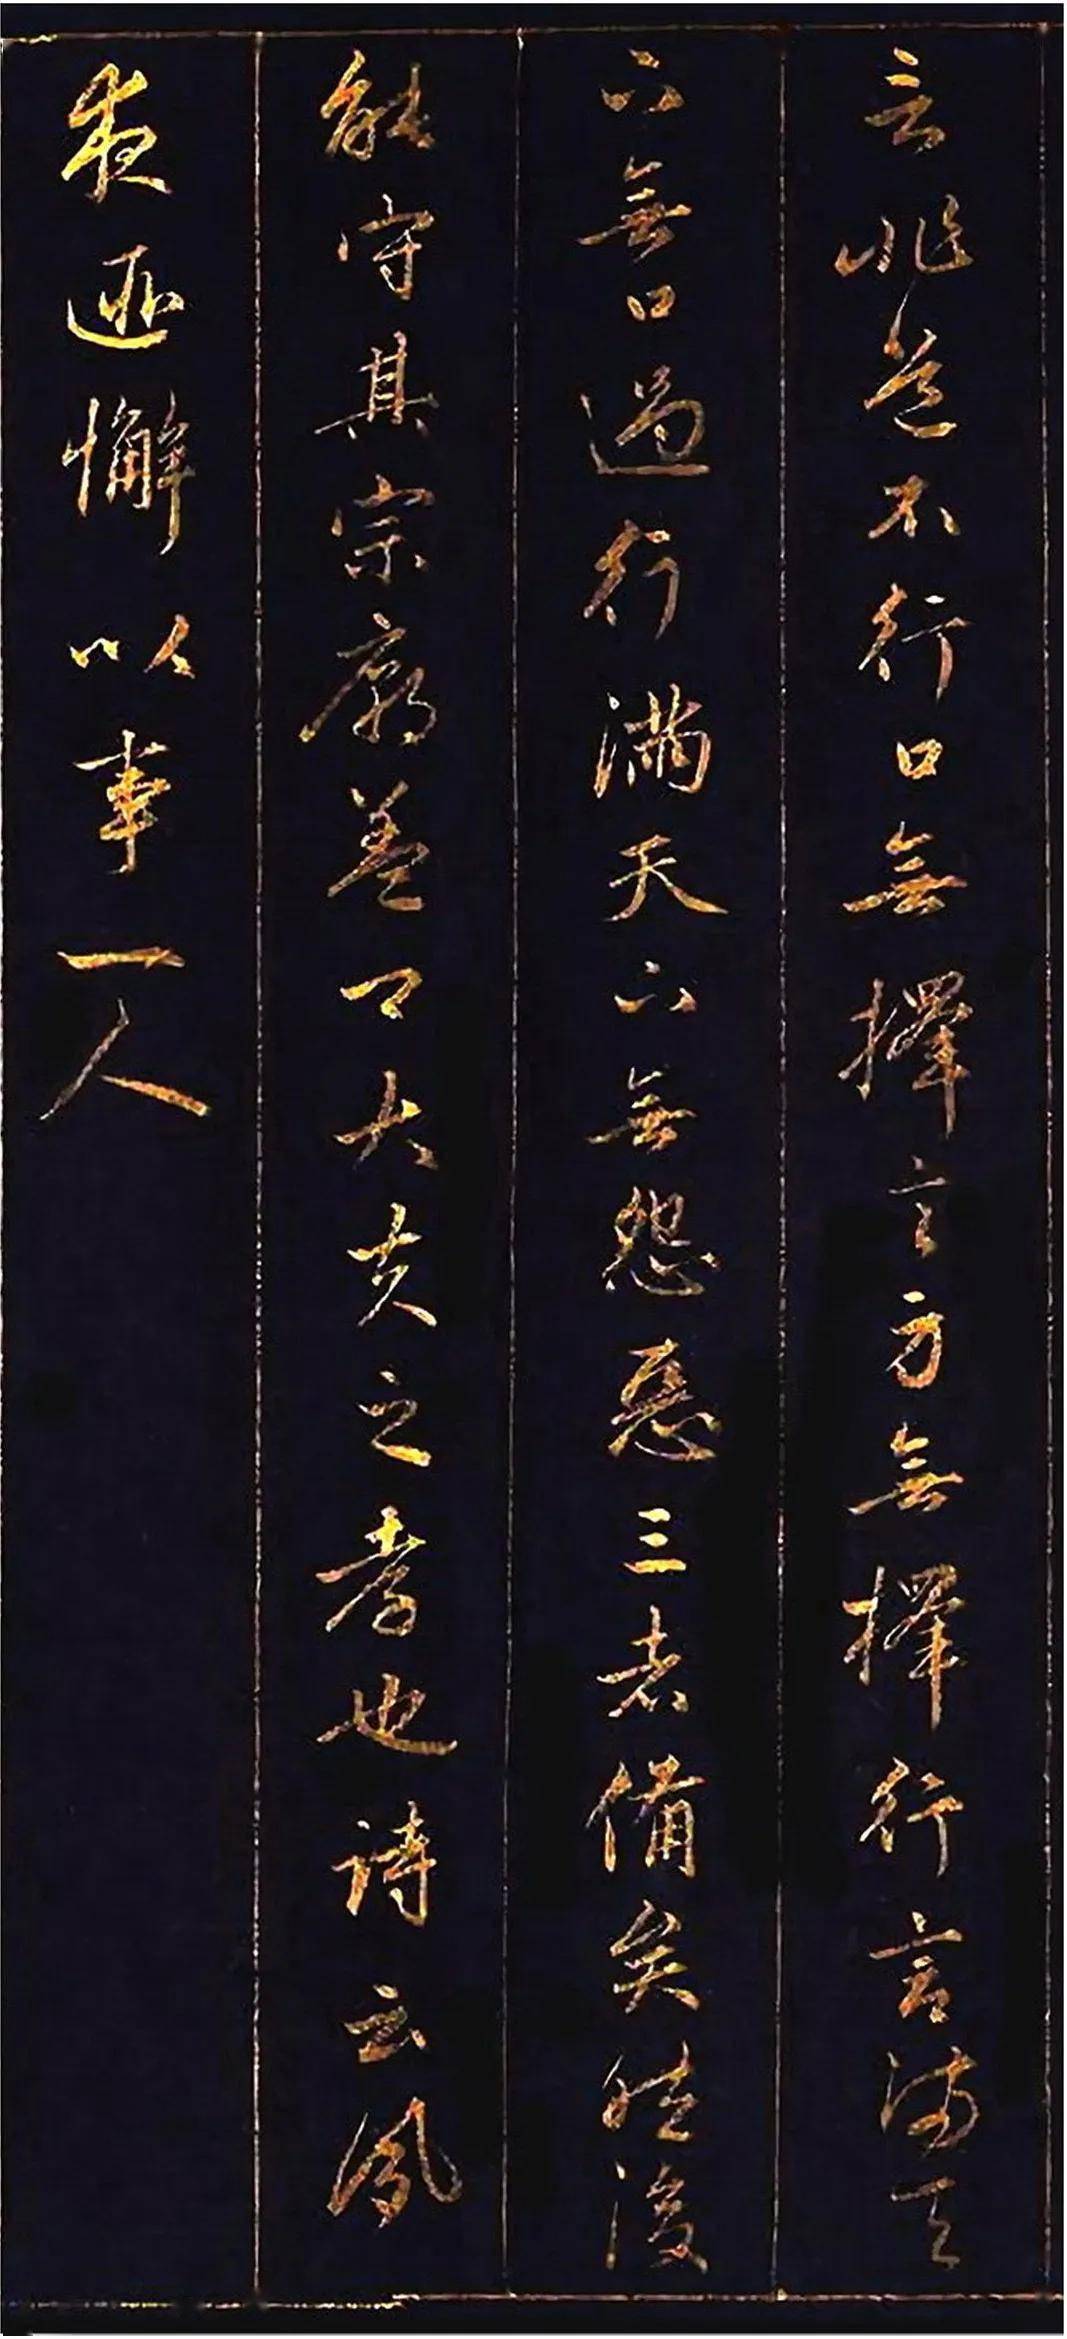 言非道不行口無擇言身無擇行言滿天
下無口過行滿天下無怨惡三者備矣然後
能守其宗廟蓋卿大夫之孝也詩云夙
夜匪懈以事一人